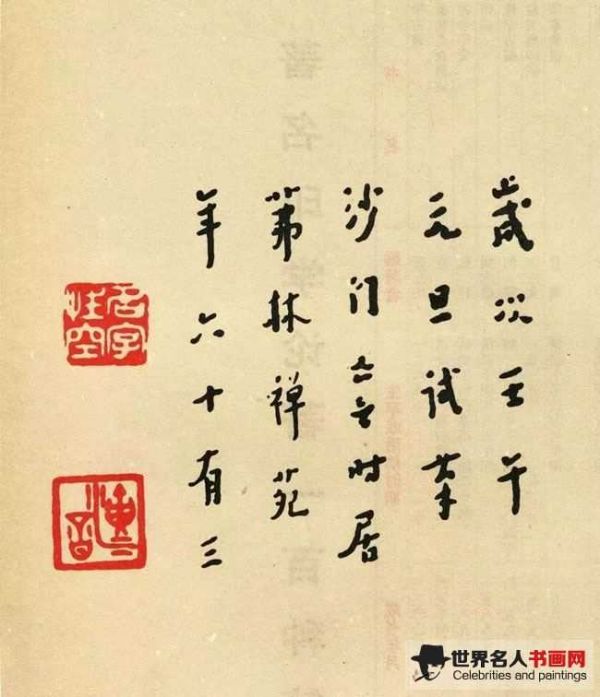 歲次壬午
元旦試筆
沙門亡言時居
茀林禪苑
年六十有三
名字性空
演音
世界名人书画网
Celebrities and paintings